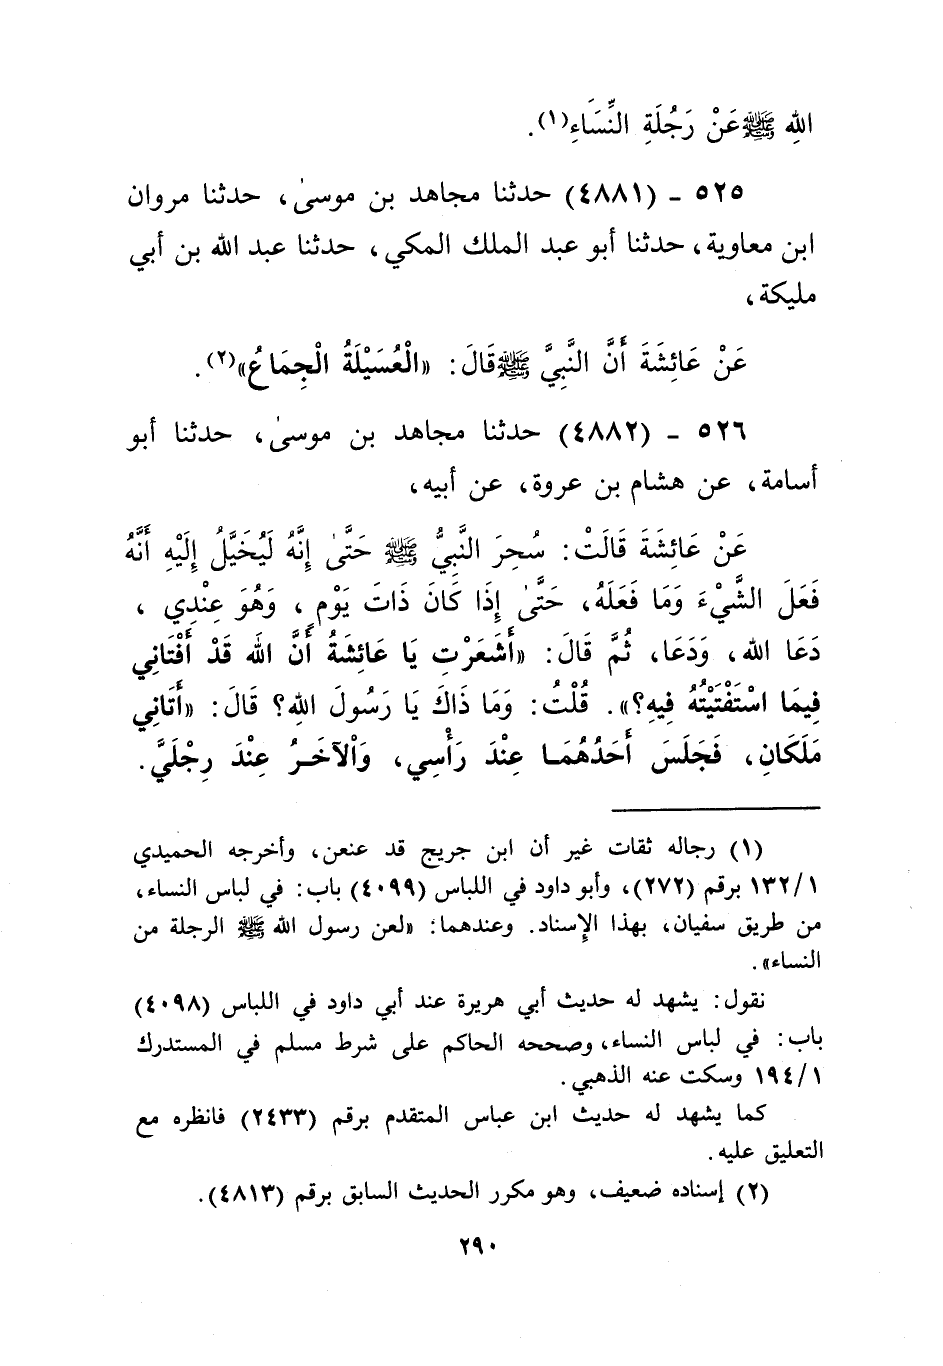 اللهِ ﷺ عَنْ رَجُلَةِ النِّسَاءِ(١).
٥٢٥ - (٤٨٨١) حدثنا مجاهد بن موسىٰ، حدثنا مروان
ابن معاوية، حدثنا أبو عبد الملك المكي، حدثنا عبد الله بن أبي
مليكة،
عَنْ عَائِشَةَ أَنَّ النَّبِيَّ ﷺ قَالَ: «الْعُسَيْلَةُ الْجِمَاعُ»(٢).
٥٢٦ - (٤٨٨٢) حدثنا مجاهد بن موسىٰ، حدثنا أبو
أسامة، عن هشام بن عروة، عن أبيه،
عَنْ عَائِشَةَ قَالَتْ: سُحِرَ النَّبِيُّ ﷺ حَتَّىٰ إِنَّهُ لَيُخَيَّلُ إِلَيْهِ أَنَّهُ
فَعَلَ الشَّيْءَ وَمَا فَعَلَهُ، حَتَّىٰ إِذَا كَانَ ذَاتَ يَوْمٍ، وَهُوَ عِنْدِي،
دَعَا اللهَ، وَدَعَا، ثُمَّ قَالَ: «أَشَعَرْتِ يَا عَائِشَةُ أَنَّ اللهَ قَدْ أَفْتَانِي
فِيمَا اسْتَفْتَيْتُهُ فِيهِ؟». قُلْتُ: وَمَا ذَاكَ يَا رَسُولَ اللهِ؟ قَالَ: «أَتَانِي
مَلَكَانِ، فَجَلَسَ أَحَدُهُمَا عِنْدَ رَأْسِي، وَالْآخَرُ عِنْدَ رِجْلَيَّ.
(١) رجاله ثقات غير أن ابن جريج قد عنعن، وأخرجه الحميدي
١٣٢/١ برقم (٢٧٢)، وأبو داود في اللباس (٤٠٩٩) باب: في لباس النساء،
من طريق سفيان، بهذا الإسناد. وعندهما: «لعن رسول الله ﷺ الرجلة من
النساء».
نقول: يشهد له حديث أبي هريرة عند أبي داود في اللباس (٤٠٩٨)
باب: في لباس النساء، وصححه الحاكم على شرط مسلم في المستدرك
١٩٤/١ وسكت عنه الذهبي.
كما يشهد له حديث ابن عباس المتقدم برقم (٢٤٣٣) فانظره مع
التعليق عليه.
(٢) إسناده ضعيف، وهو مكرر الحديث السابق برقم (٤٨١٣).
٢٩٠